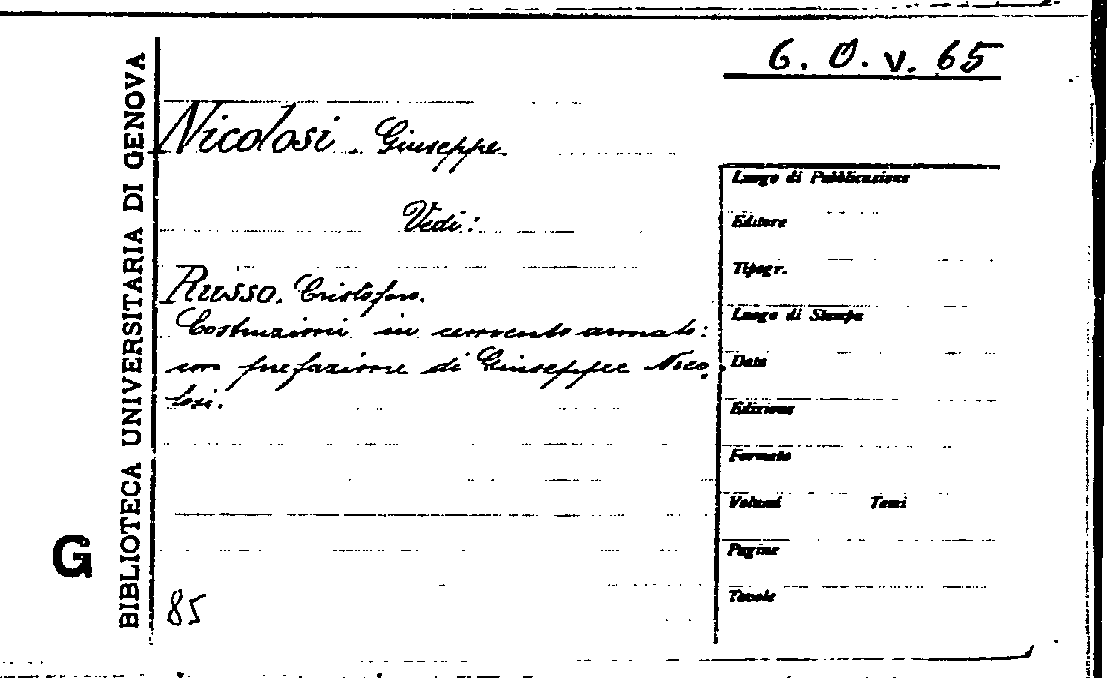 6. O. v. 65
BIBLIOTECA UNIVERSITARIA DI GENOVA
Nicolosi. Giuseppe.
Vedi:
Russo. Cristoforo.
Costruzioni in cemento armato:
con prefazione di Giuseppe Nico
losi.
G
85
Luogo di Pubblicazione
Editore
Tipogr.
Luogo di Stampa
Data
Edizione
Formato
Volumi Tomi
Pagine
Tavole